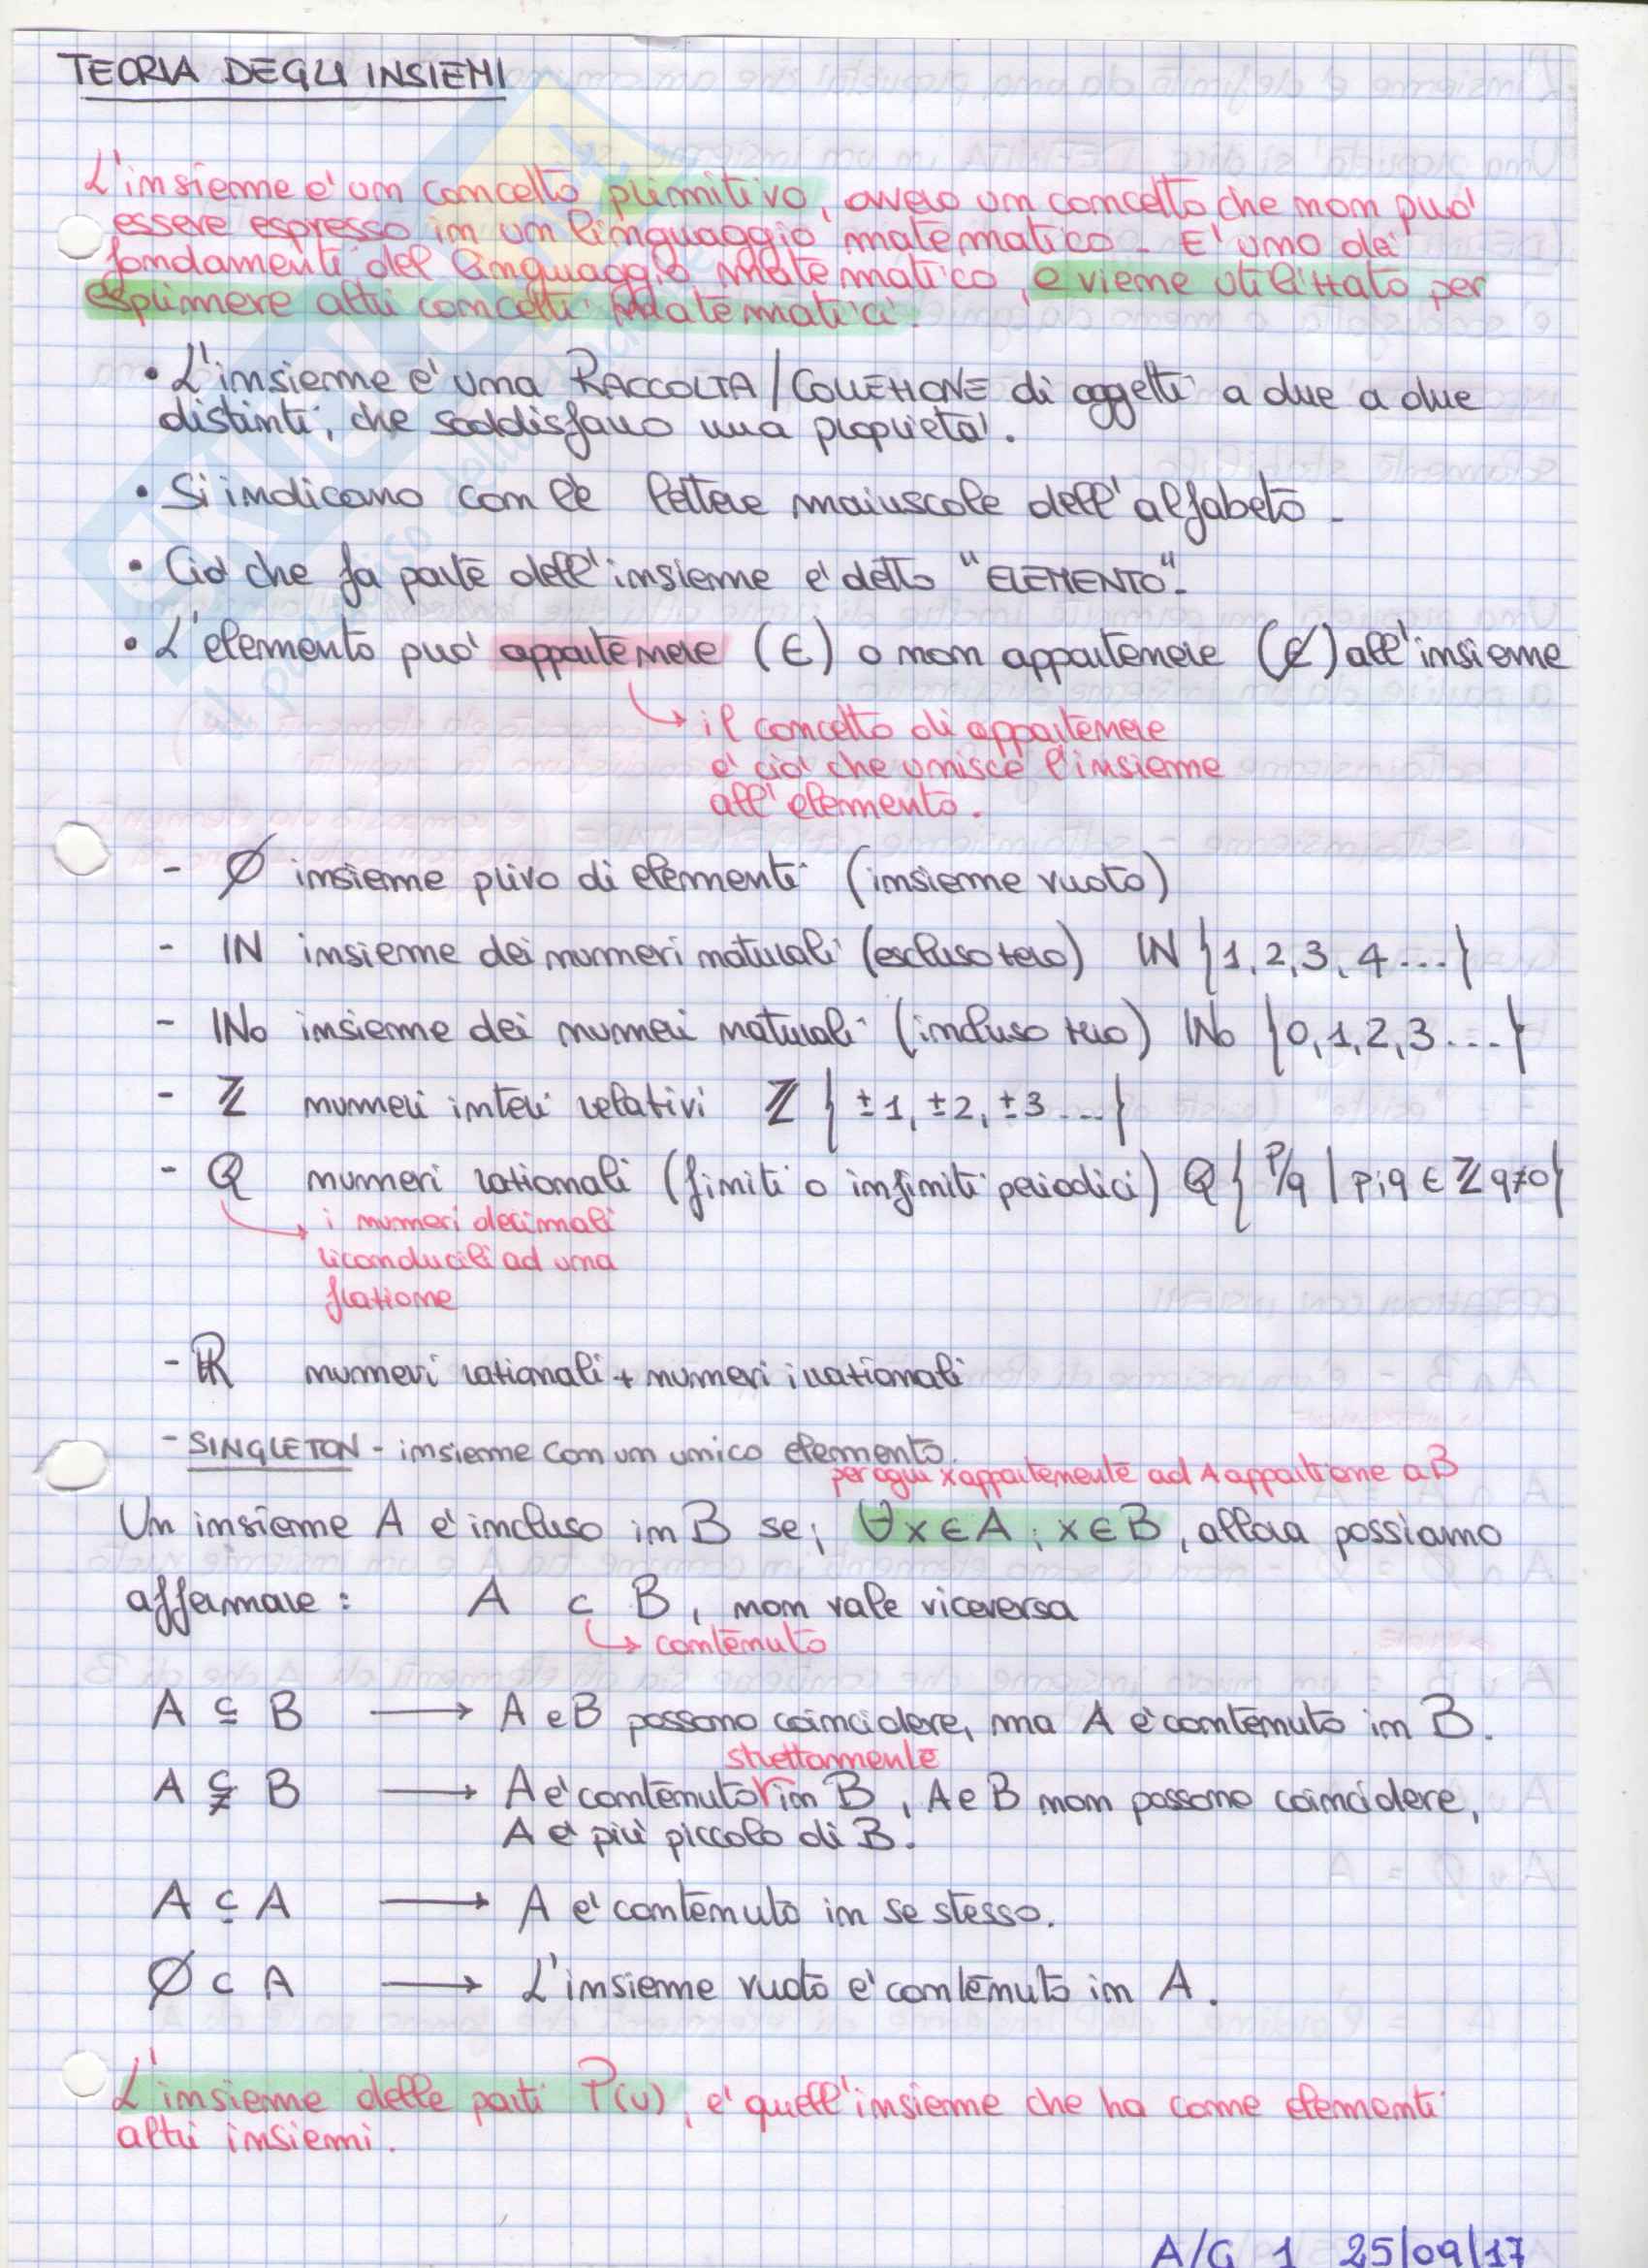 TEORIA DEGLI INSIEMI
L'insieme e' un concetto primitivo, ovvero un concetto che non puo'
essere espresso in un linguaggio matematico. E' uno dei
fondamenti del linguaggio matematico, e viene utilizzato per
esprimere altri concetti matematici.
• L'insieme e' una RACCOLTA/COLLEZIONE di oggetti a due a due
distinti, che soddisfano una proprieta'.
• Si indicano con le lettere maiuscole dell'alfabeto.
• Cio' che fa parte dell'insieme e' detto "ELEMENTO".
• L'elemento puo' appartenere (∈) o non appartenere (∉) all'insieme
↳ il concetto di appartenere
e' cio' che unisce l'insieme
all'elemento.
- Ø insieme privo di elementi (insieme vuoto)
- IN insieme dei numeri naturali (escluso zero) IN {1, 2, 3, 4 ...}
- INo insieme dei numeri naturali (incluso zero) INo {0, 1, 2, 3 ...}
- ℤ numeri interi relativi ℤ { ±1, ±2, ±3 ...}
- Q numeri razionali (finiti o infiniti periodici) Q { P/q | p;q ∈ ℤ q≠0}
↳ i numeri decimali
riconducibili ad una
frazione
- ℝ numeri razionali + numeri irrazionali
- SINGLETON - insieme con un unico elemento.
per ogni x appartenente ad A appartiene a B
Un insieme A e' incluso in B se; ∀x∈A; x∈B, allora possiamo
affermare: A ⊂ B, non vale viceversa
↳ contenuto
A ⊆ B ⟶ A e B possono coincidere, ma A e' contenuto in B.
strettamente
A ⊊ B ⟶ A e' contenuto in B, A e B non possono coincidere,
A e' piu' piccolo di B.
A ⊆ A ⟶ A e' contenuto in se stesso.
Ø ⊂ A ⟶ L'insieme vuoto e' contenuto in A.
L'insieme delle parti P(U), e' quell'insieme che ha come elementi
altri insiemi.
A/G 1 25/09/17